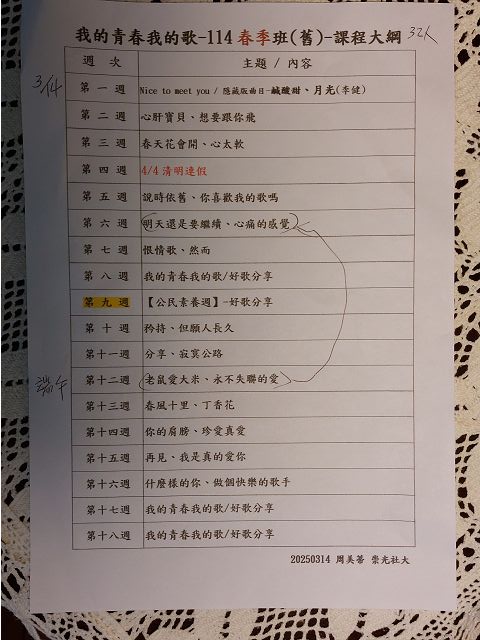 我的青春我的歌-114 春季班(舊)-課程大綱 32人
週 次 主題 / 內容
3/14 第 一 週 Nice to meet you / 隱藏版曲目-鹹酸甜、月光(李健)
第 二 週 心肝寶貝、想要跟你飛
第 三 週 春天花會開、心太軟
第 四 週 4/4 清明連假
第 五 週 說時依舊、你喜歡我的歌嗎
第 六 週 明天還是要繼續、心痛的感覺
第 七 週 恨情歌、然而
第 八 週 我的青春我的歌/好歌分享
第 九 週 【公民素養週】-好歌分享
第 十 週 矜持、但願人長久
第十一週 分享、寂寞公路
端午 第十二週 老鼠愛大米、永不失聯的愛
第十三週 春風十里、丁香花
第十四週 你的肩膀、珍愛真愛
第十五週 再見、我是真的愛你
第十六週 什麼樣的你、做個快樂的歌手
第十七週 我的青春我的歌/好歌分享
第十八週 我的青春我的歌/好歌分享
20250314 周美蒂 崇光社大